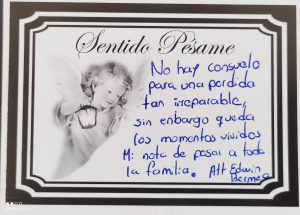 Sentido Pésame
No hay consuelo
para una perdida
tan irreparable,
sin enbargo queda
los momentos vividos
Mi nota de pesar a toda
la familia. Att Edwin
Bermeo